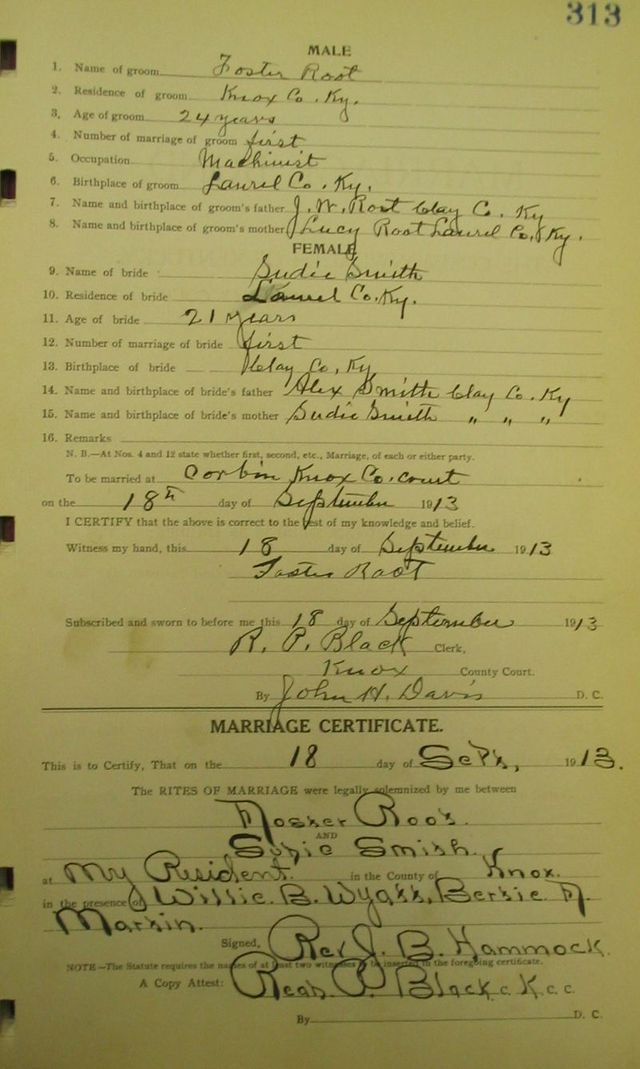 313
MALE
1. Name of groom Foster Root
2. Residence of groom Knox Co. Ky.
3. Age of groom 24 years
4. Number of marriage of groom first
5. Occupation Machinist
6. Birthplace of groom Laurel Co. Ky.
7. Name and birthplace of groom's father J. W. Root Clay Co. Ky
8. Name and birthplace of groom's mother Lucy Root Laurel Co. Ky.
FEMALE
9. Name of bride Sudie Smith
10. Residence of bride Laurel Co. Ky.
11. Age of bride 21 years
12. Number of marriage of bride first
13. Birthplace of bride Clay Co. Ky
14. Name and birthplace of bride's father Alex Smith Clay Co. Ky
15. Name and birthplace of bride's mother Sudie Smith " " "
16. Remarks
N. B.—At Nos. 4 and 12 state whether first, second, etc., Marriage, of each or either party.
To be married at Corbin Knox Co. court
on the 18th day of September 1913
I CERTIFY that the above is correct to the best of my knowledge and belief.
Witness my hand, this 18 day of September 1913
Foster Root
Subscribed and sworn to before me this 18 day of September 1913
R. P. Black Clerk,
Knox County Court.
By John H. Davis D. C.
MARRIAGE CERTIFICATE.
This is to Certify, That on the 18 day of Sept, 1913.
The RITES OF MARRIAGE were legally solemnized by me between
Foster Root.
AND
Sudie Smith.
at My Resident. in the County of Knox.
in the presence of Willie. B. Wyatt, Bertie. A.
Martin.
Signed, Rev J. B. Hammock.
NOTE—The Statute requires the names of at least two witnesses to be inserted in the foregoing certificate.
A Copy Attest: Read P. Black C. K. C. C.
By D. C.